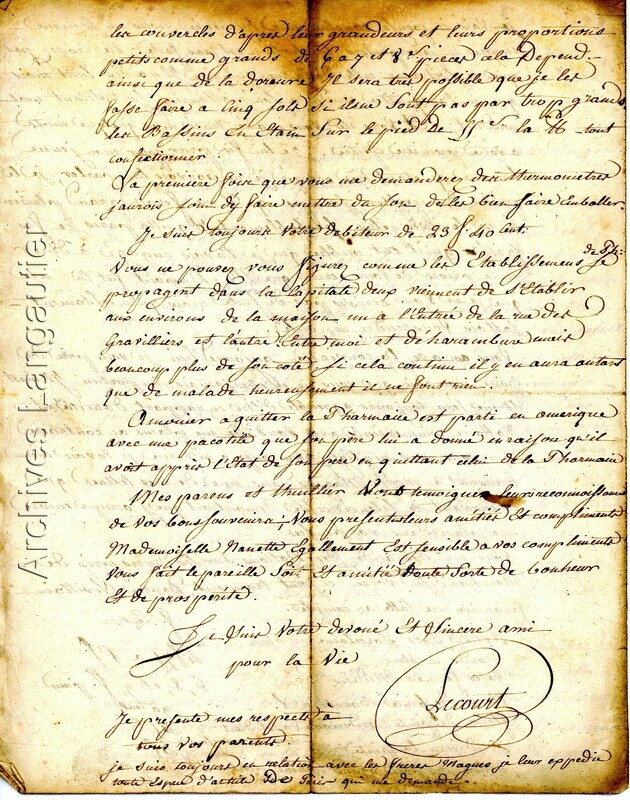 les couvercles d'apres leur grandeurs et leurs proportions
petits comme grands de 6 a 7 et 8 pieces cela Depend
ainsi que de la dorure Il sera tres possible que je les
fasse faire a Cinq sols si ils ne Sont pas par trop grands
les Bassins En Etain Sur le pied De la tout
confectionner.
La premiere foise que vous me demanderez des thermometres
j'aurois soin d'y faire mettre du Son & de les bien faire Emballer.
Je suis toujours Votre debiteur de 23 f 40 Cent.
Vous ne pouvez vous figurez comme les Etablissemens de Ph.ie se
propagent dans la Capitale deux viennent de s'Etablir
aux environs de la maison un a l'Entrée de la rue des
Gravilliers et l'autre Entre moi et deharambure mais
beaucoup plus de son coté, si cela continu il y en aura autant
que de malade heureusement il ne font rien.
a quitter la Pharmacie est parti en amerique
avec une pacotille que son père lui a donné en raison qu'il
avoit appris l'Etat de son pere en quittant celui de la Pharmacie
Mes parens et thuillier Vous temoigne leur reconnoissance
de Vos bons souvenirs; Vous presente leurs amitiés Et compliments
Mademoiselle Nanette Egallement Est sensible a vos compliments
Vous fait le pareille Et amitié toute Sorte de bonheur
Et de prosperité.
Je Suis Votre devoué Et Sincere ami
pour la Vie
Lecourt
Je presente mes respects à
tous Vos parents.
je suis toujours en relation avec les freres Magnes je leur expedie
toute Espece d'article De Paris qui me demande.
Archives Langautier